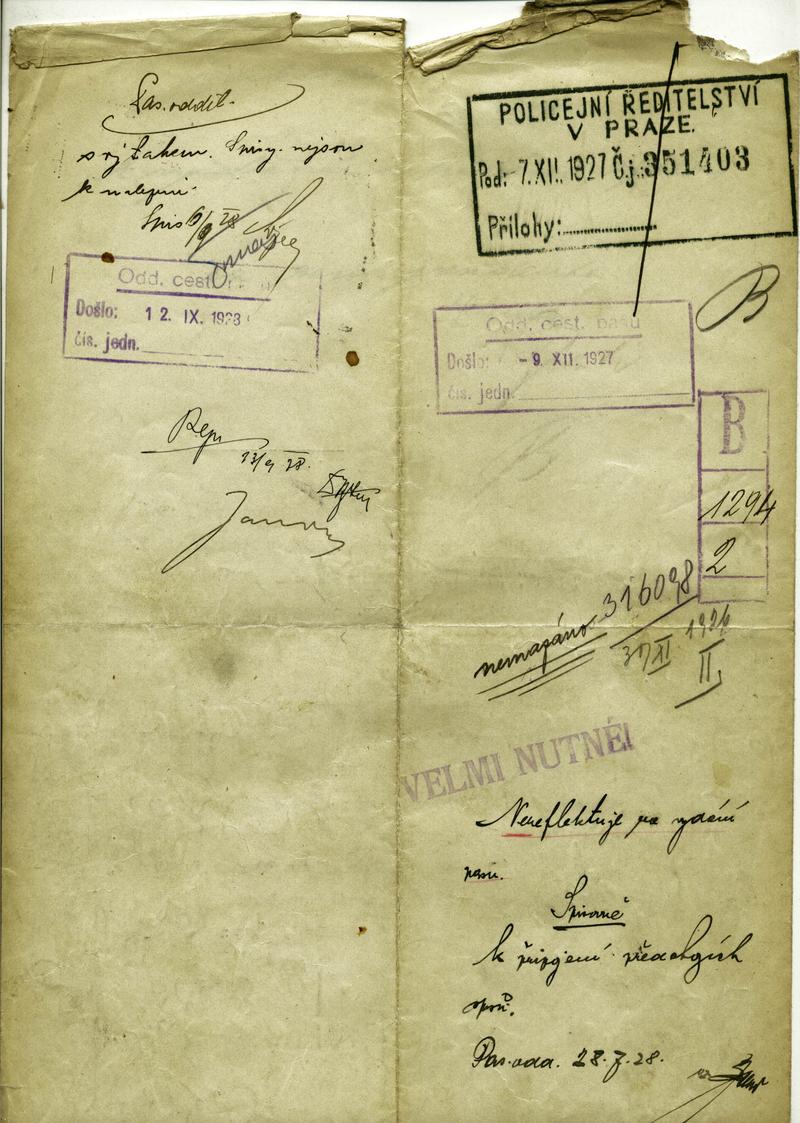 Pas. odděl.
s výtahem. Spisy nejsou
k nalepení.
Spis 6/9 28
Odd. cest.
Došlo: 12. IX. 1928
čís. jedn.
Repr
13/9 28.
POLICEJNÍ ŘEDITELSTVÍ
V PRAZE.
Pod: -7. XII. 1927 Č.j. 351403
Přílohy:
B
Odd. cest. pasů
Došlo: -9. XII. 1927
čís. jedn.
B
1294
2
316098
nemazáno
1926
XI II
VELMI NUTNÉ!
Nereflektuje na vydání
pasu.
Spisovně
k připojení předchozích
spisů.
Pas. odd. 28. 7. 28.